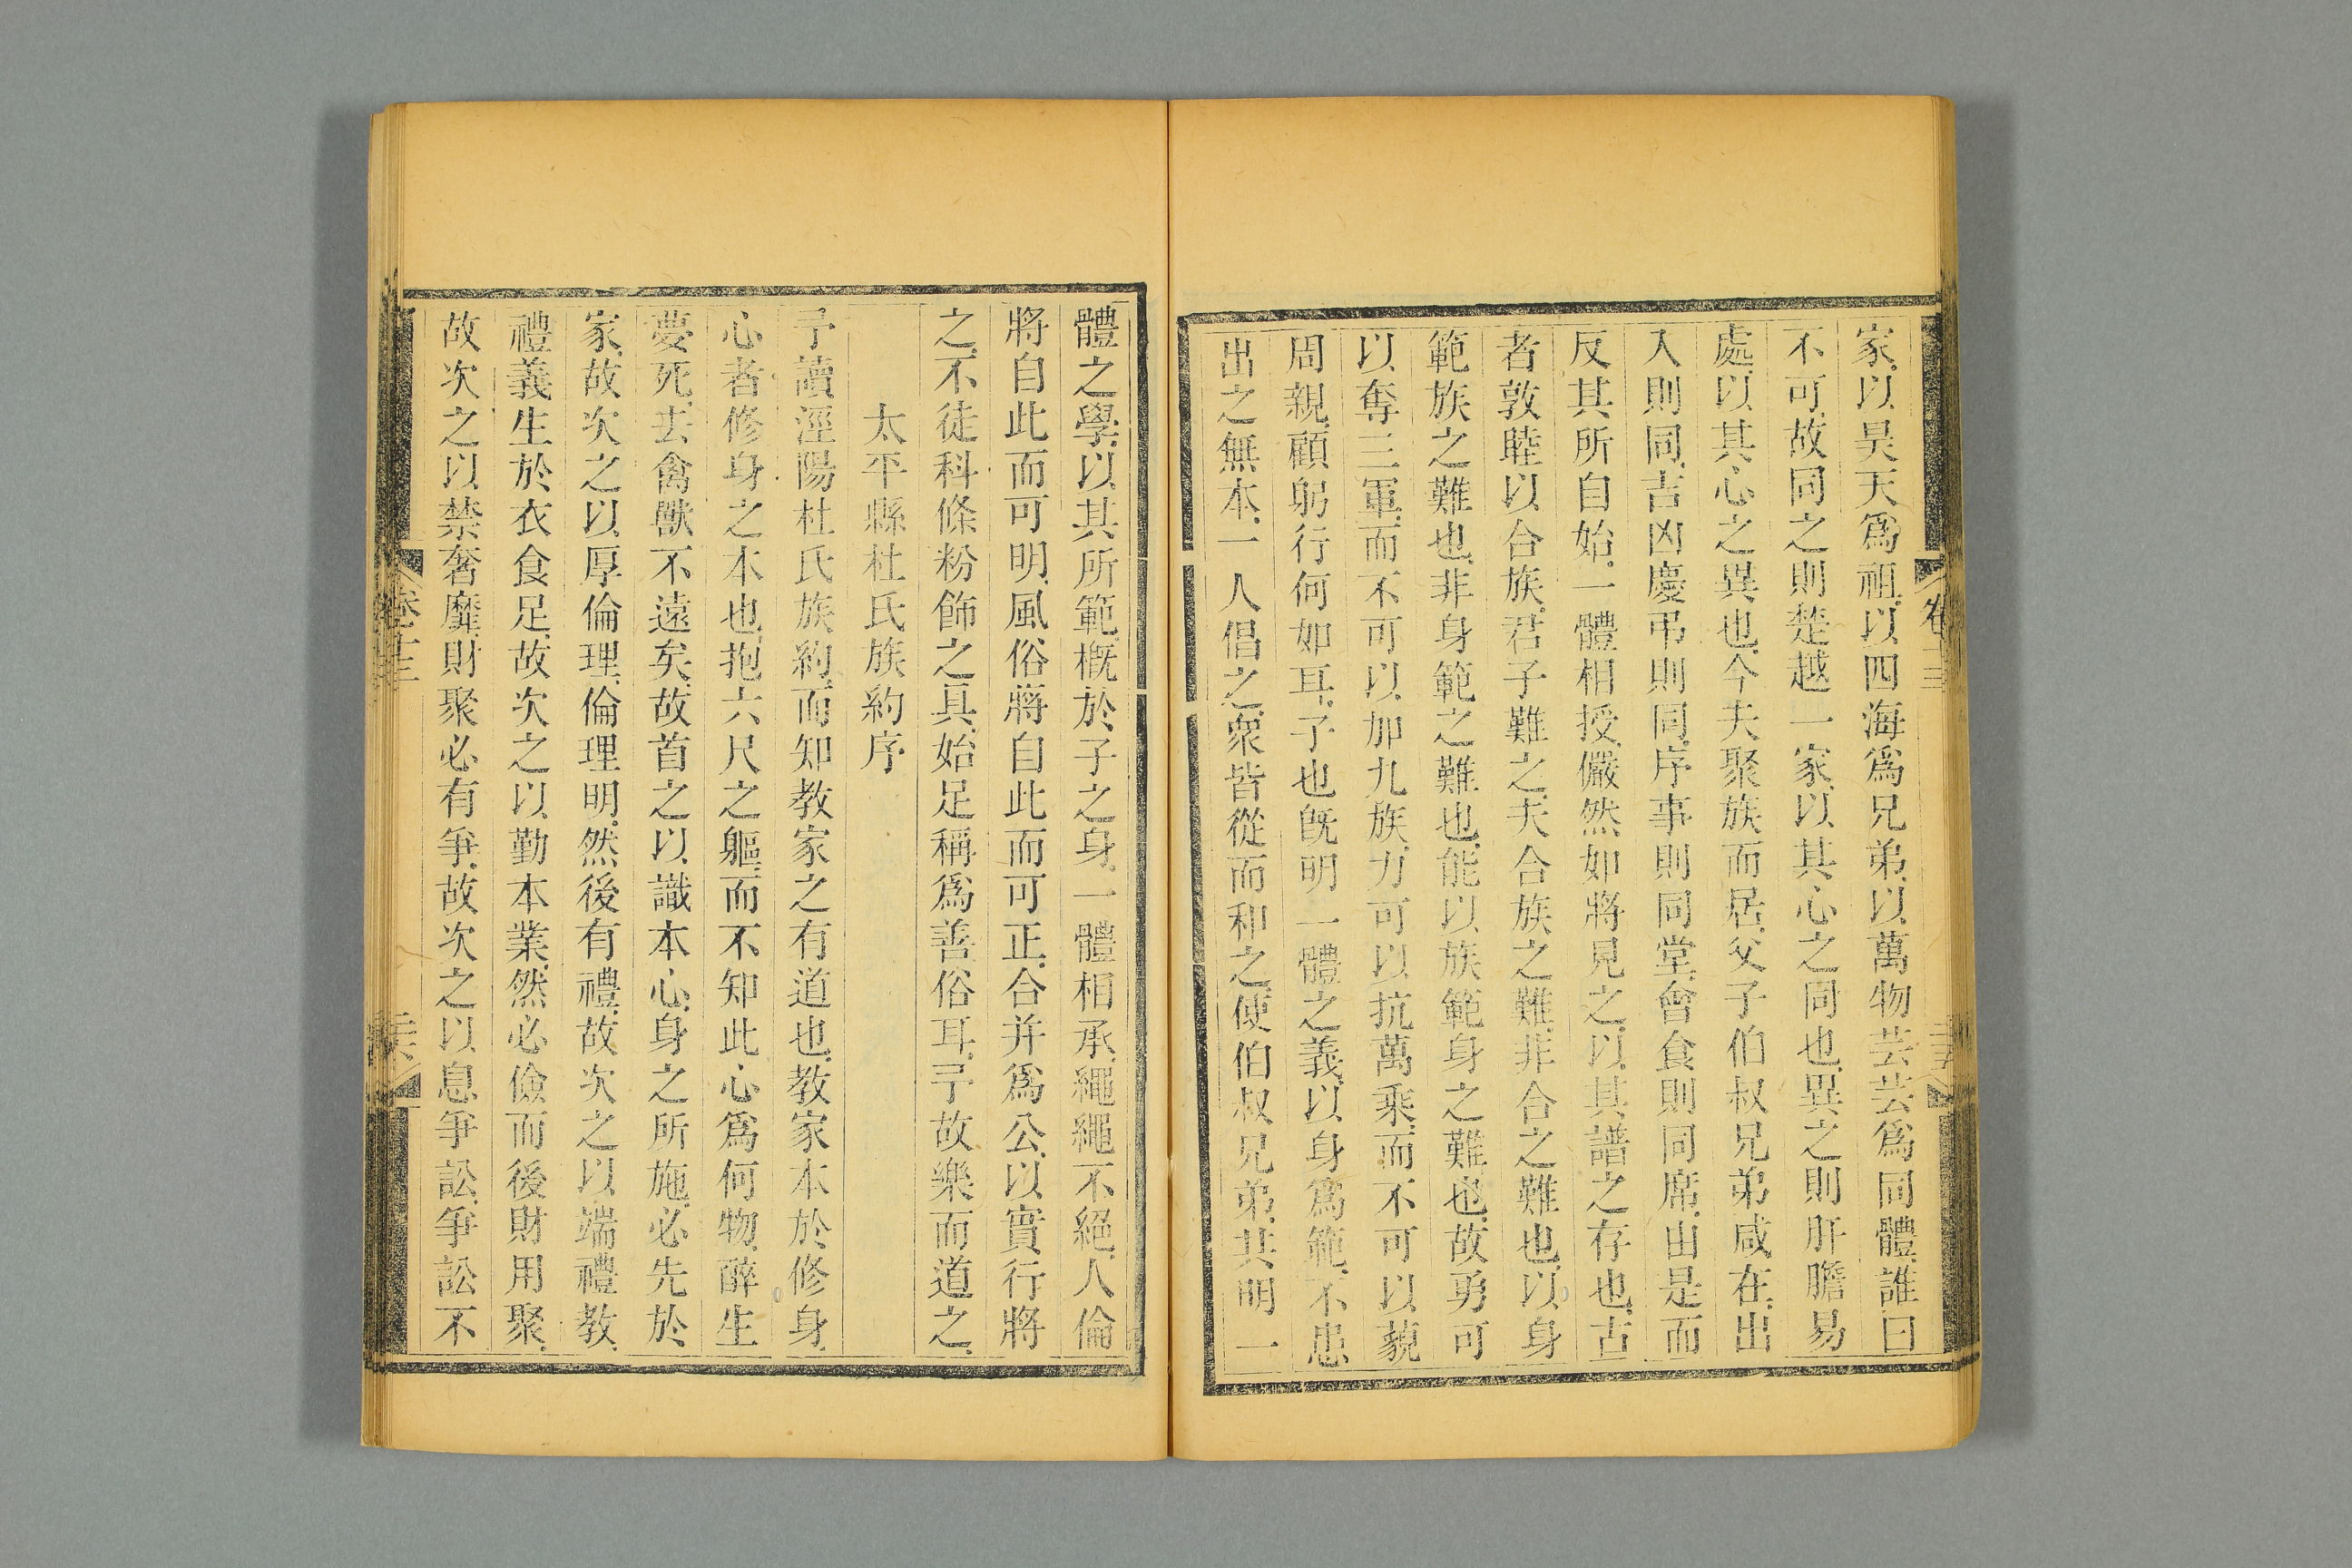 家以昊天爲祖以四海爲兄弟以萬物芸芸爲同體誰曰
不可故同之則楚越一家以其心之同也異之則肝膽易
處以其心之異也今夫聚族而居父子伯叔兄弟咸在出
入則同吉凶慶弔則同序事則同堂會食則同席由是而
反其所自始一體相授儼然如將見之以其譜之存也古
者敦睦以合族君子難之夫合族之難非合之難也以身
範族之難也非身範之難也能以族範身之難也故勇可
以奪三軍而不可以加九族力可以抗萬乘而不可以藐
周親顧躬行何如耳子也既明一體之義以身爲範不患
出之無本一人倡之衆皆從而和之使伯叔兄弟共明一
體之學以其所範概於子之身一體相承繩繩不絕人倫
將自此而可明風俗將自此而可正合并爲公以實行將
之不徒科條粉飾之具始足稱爲善俗耳予故樂而道之
太平縣杜氏族約序
予讀涇陽杜氏族約而知教家之有道也教家本於修身
心者修身之本也抱六尺之軀而不知此心爲何物醉生
夢死去禽獸不遠矣故首之以識本心身之所施必先於
家故次之以厚倫理倫理明然後有禮故次之以端禮教
禮義生於衣食足故次之以勤本業然必儉而後財用聚
故次之以禁奢靡財聚必有爭故次之以息爭訟爭訟不
卷十三
三十六